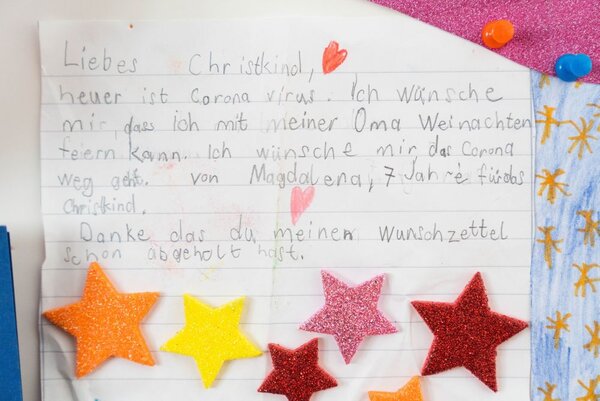 Liebes Christkind,
heuer ist Corona virus. Ich wünsche
mir dass ich mit meiner Oma Weinachten
feiern kann. Ich wünsche mir das Corona
weg geht. von Magdalena, 7 Jahre für das
Christkind.
Danke das du meinen Wunschzettel
schon abgeholt hast.